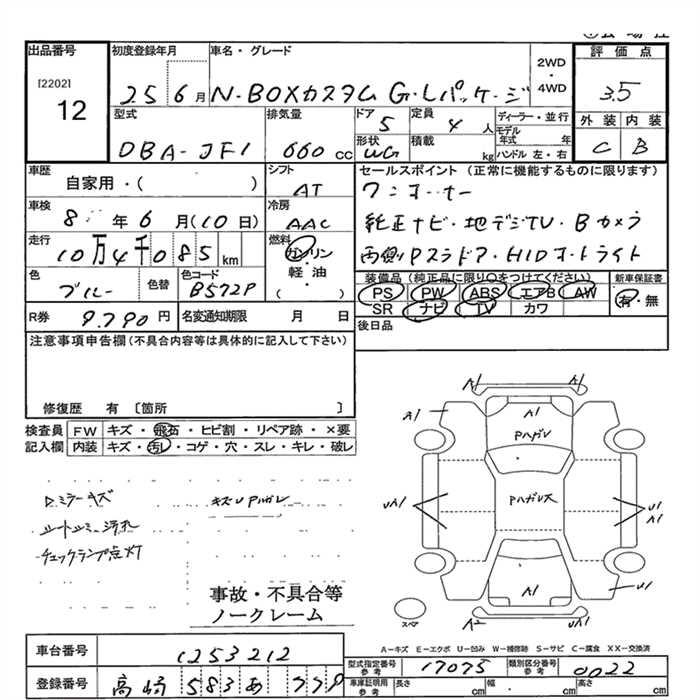 出品番号
[2202]
12
初度登録年月
25 6月
車名・グレード
N-BOXカスタム G・Lパッケージ
2WD
・
4WD
評価点
3.5
外装 内装
C B
型式
DBA-JF1
排気量
660 cc
ドア
5
形状
WG
定員
4 人
積載
kg
ディーラー・並行
モデル
年式 年
ハンドル 左・右
車歴
自家用・( )
シフト
AT
車検
8 年 6 月(10日)
冷房
AAC
走行
10万4千085 km
燃料
ガソリン
軽・油
( ・ )
色
ブルー
色替
色コード
B572P
R券
9.790 円
名変通知期限 月 日
セールスポイント (正常に機能するものに限ります)
ワンオーナー
純正ナビ・地デジTV・Bカメラ
両側Pスラドア・HIDオートライト
装備品 (純正品に限り○をつけてください)
PS PW ABS エアB AW
SR ナビ TV カワ
新車保証書
有・無
後日品
注意事項申告欄 (不具合内容等は具体的に記入して下さい)
修復歴 有 〔箇所 〕
検査員
記入欄
FW キズ・飛石・ヒビ割・リペア跡・×要
内装 キズ・汚レ・コゲ・穴・スレ・キレ・破レ
Dミラーキズ
シートシミ汚れ
チェックランプ点灯
キズUPハガレ
事故・不具合等
ノークレーム
A1 A1
A1 A1
Pハガレ
Pハガレ大
UA1
U1
A1
A1
U1
A2 U1
スペア
A-キズ E-エクボ U-凹み W-補修跡 S-サビ C-腐食 XX-交換済
車台番号
1253212
登録番号
高崎 583 あ 779
型式指定番号
参考
17075
類別区分番号
参考
0022
車庫証明用
参考
長さ cm
幅 cm
高さ cm